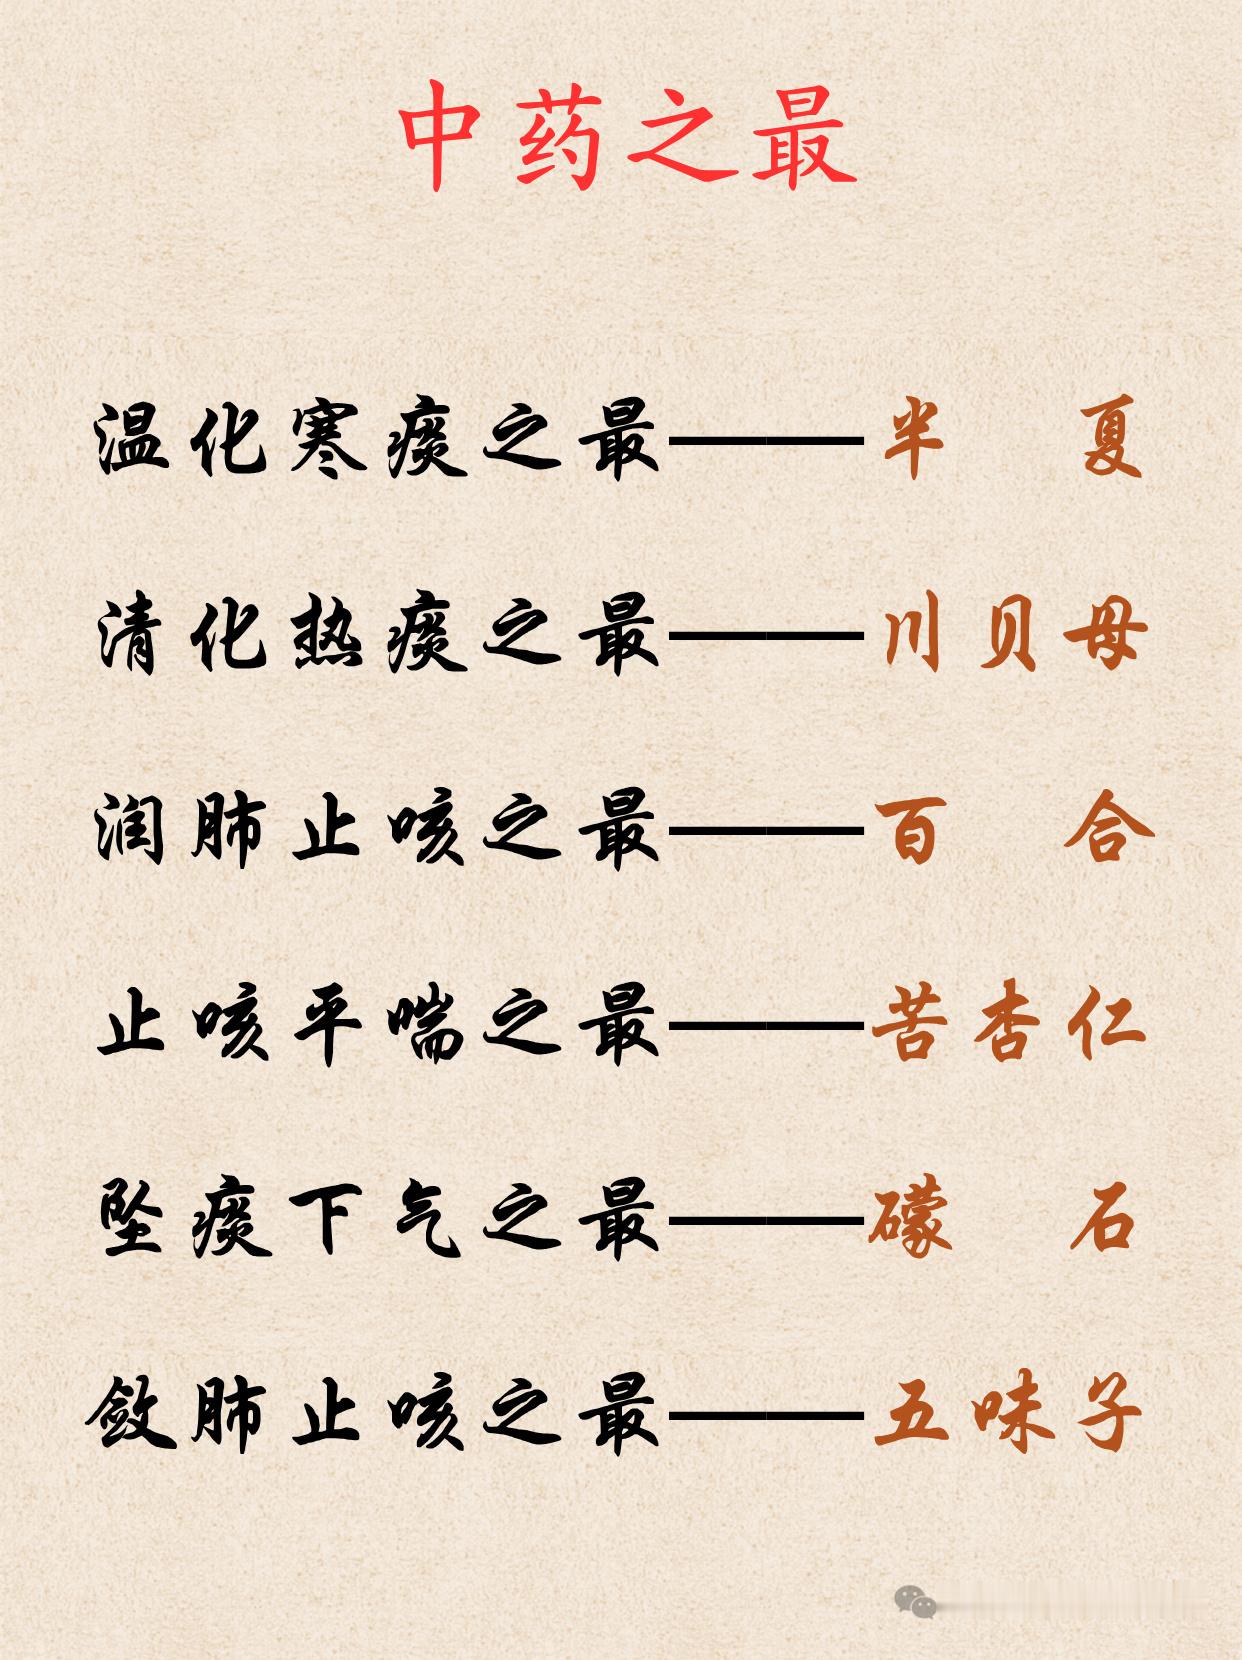 中药之最
温化寒痰之最——半夏
清化热痰之最——川贝母
润肺止咳之最——百合
止咳平喘之最——苦杏仁
坠痰下气之最——礞石
敛肺止咳之最——五味子